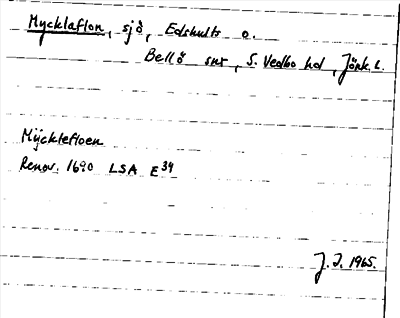 Mycklaflon, sjö, Edshults o.
Bellö snr, S. Vedbo hd, Jönk. l.
Mycklefloen
Renov. 1690 LSA E34
J. I. 1965.